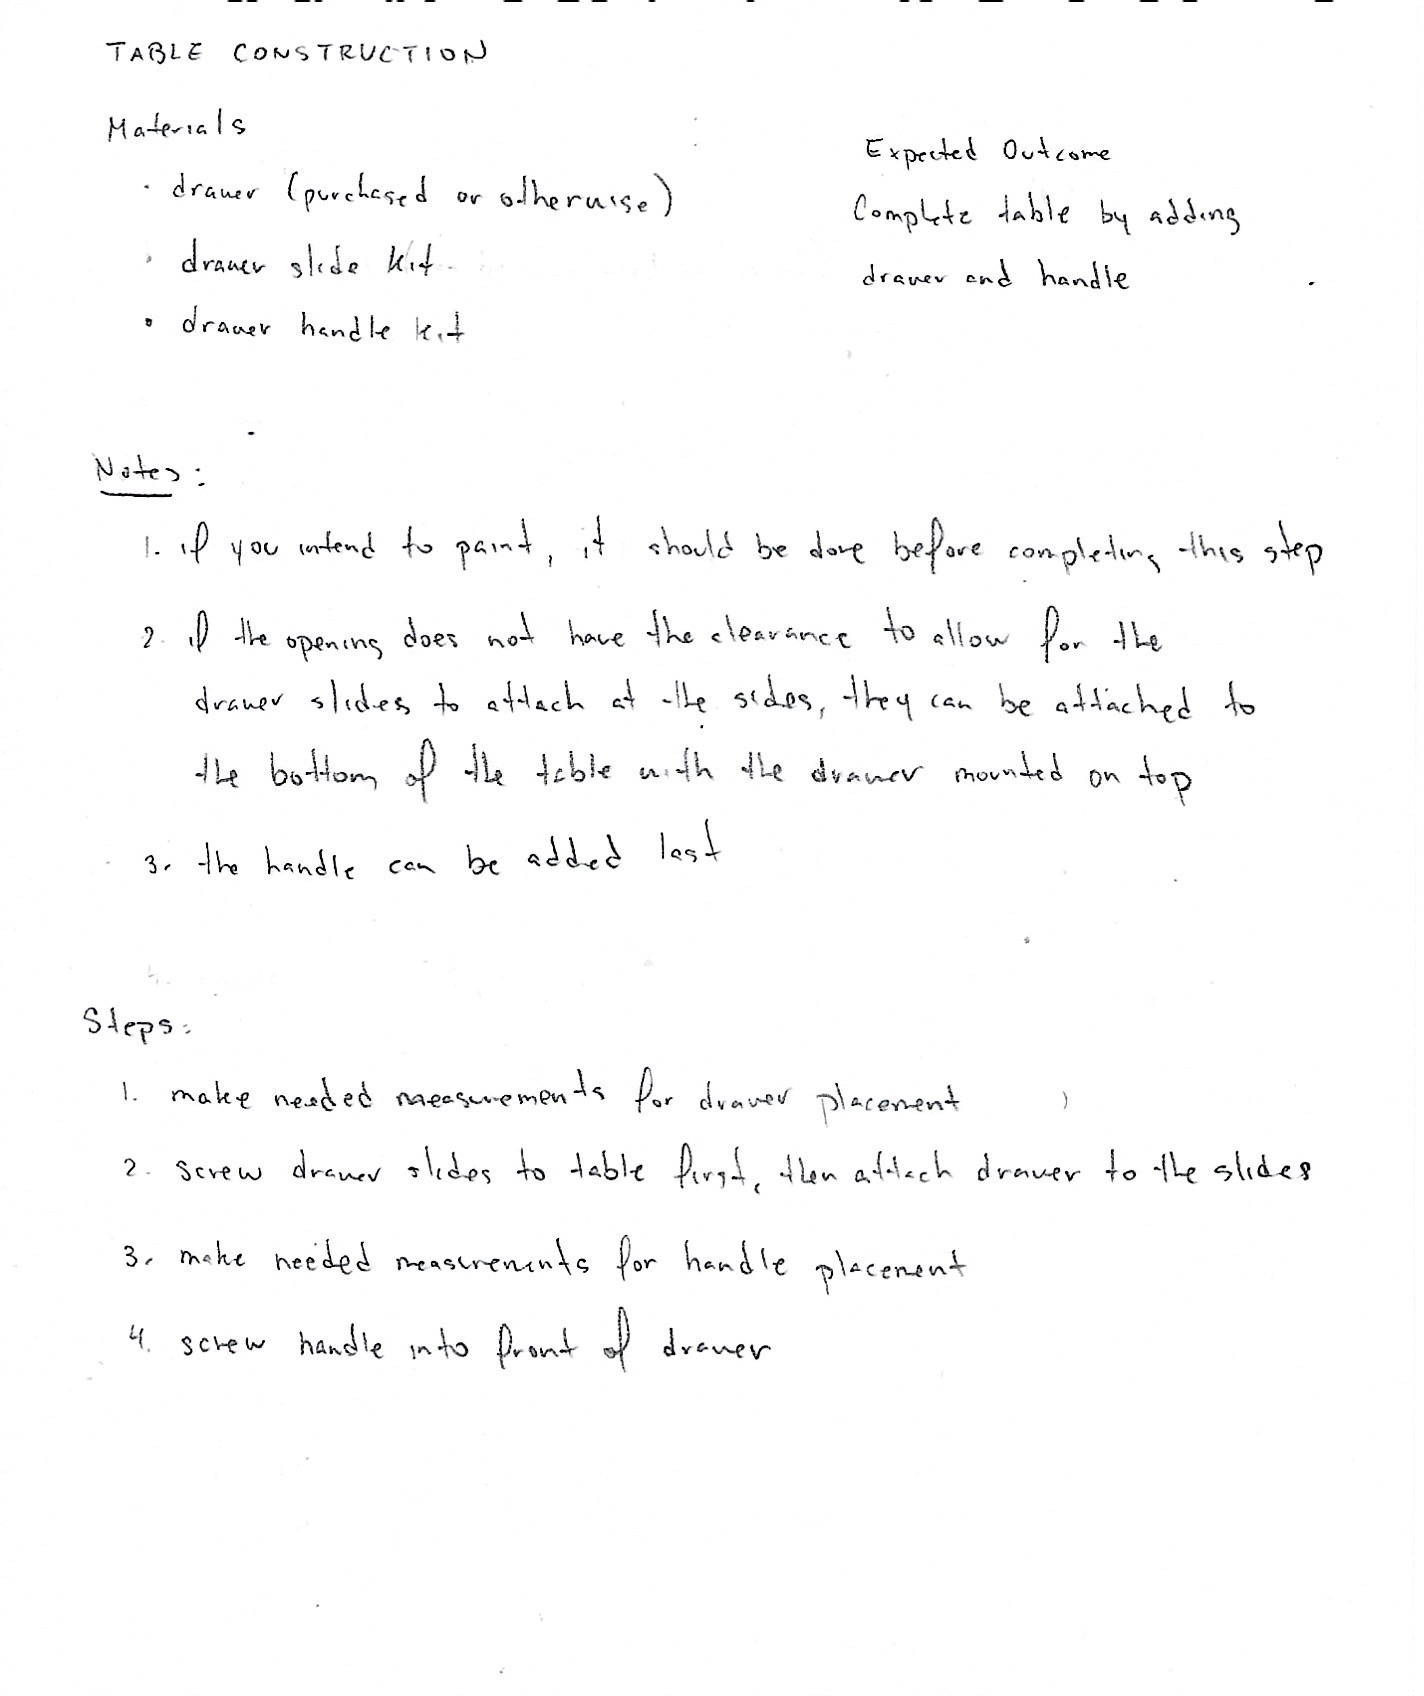 TABLE CONSTRUCTION
Materials
· drawer (purchased or otherwise)
· drawer slide kit
• drawer handle kit
Expected Outcome
Complete table by adding
drawer and handle
Notes:
1. if you intend to paint, it should be done before completing this step
2. if the opening does not have the clearance to allow for the
drawer slides to attach at the sides, they can be attached to
the bottom of the table with the drawer mounted on top
3. the handle can be added last
Steps:
1. make needed measurements for drawer placement
2. screw drawer slides to table first, then attach drawer to the slides
3. make needed measurements for handle placement
4. screw handle into front of drawer